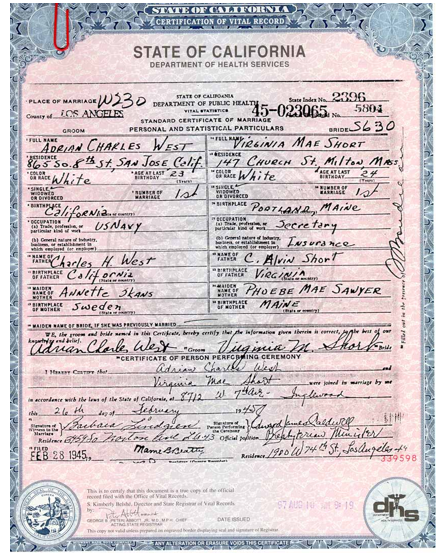 STATE OF CALIFORNIA
CERTIFICATION OF VITAL RECORD
STATE OF CALIFORNIA
DEPARTMENT OF HEALTH SERVICES
PLACE OF MARRIAGE W230 STATE OF CALIFORNIA State Index No. 2396
DEPARTMENT OF PUBLIC HEALTH
County of LOS ANGELES VITAL STATISTICS 45-023065 5804
STANDARD CERTIFICATE OF MARRIAGE
GROOM PERSONAL AND STATISTICAL PARTICULARS BRIDE S630
FULL NAME ADRIAN CHARLES WEST FULL NAME VIRGINIA MAE SHORT
RESIDENCE 865 So. 8th St, SAN JOSE Calif. RESIDENCE 147 CHURCH St, MILTON MASS
COLOR OR RACE White AGE AT LAST BIRTHDAY 23 (Years) COLOR OR RACE White AGE AT LAST BIRTHDAY 24 (Years)
SINGLE, WIDOWED OR DIVORCED NUMBER OF MARRIAGE 1st SINGLE, WIDOWED OR DIVORCED NUMBER OF MARRIAGE 1st
BIRTHPLACE California (State or country) BIRTHPLACE PORTLAND, MAINE (State or country)
OCCUPATION (a) Trade, profession, or particular kind of work US Navy OCCUPATION (a) Trade, profession, or particular kind of work Secretary
(b) General nature of industry, business, or establishment in which employed (or employer) (b) General nature of industry, business, or establishment in which employed (or employer) Insurance
NAME OF FATHER Charles H. West NAME OF FATHER C. Alvin Short
BIRTHPLACE OF FATHER California (State or country) BIRTHPLACE OF FATHER VIRGINIA (State or country)
MAIDEN NAME OF MOTHER Annette MAIDEN NAME OF MOTHER PHOEBE MAE SAWYER
BIRTHPLACE OF MOTHER Sweden (State or country) BIRTHPLACE OF MOTHER MAINE (State or country)
MAIDEN NAME OF BRIDE, IF SHE WAS PREVIOUSLY MARRIED
WE, the groom and bride named in this Certificate, hereby certify that the information given therein is correct, to the best of our knowledge and belief.
Adrian Charles West Groom Virginia M. Short Bride
CERTIFICATE OF PERSON PERFORMING CEREMONY
I HEREBY CERTIFY that Adrian Charles West and
Virginia Mae Short were joined in marriage by me
in accordance with the laws of the State of California, at 8712 W Inglewood
this 26th day of February 1945
Signature of Witness to the Marriage Barbara Signature of Person Performing the Ceremony Edward James Caldwell
Official position Minister
FILED FEB 28 1945, Residence 1900 W 74th St, Los Angeles - 44
Registrar
339598
This is to certify that this document is a true copy of the official
record filed with the Office of Vital Records.
S. Kimberly Belshé, Director and State Registrar of Vital Records
by:
GEORGE B. (PETER) ABBOTT, JR., M.D., M.P.H., CHIEF
ACTING STATE REGISTRAR
DATE ISSUED
This copy not valid unless prepared on engraved border displaying seal and signature of Registrar
dhs
ANY ALTERATION OR ERASURE VOIDS THIS CERTIFICATE